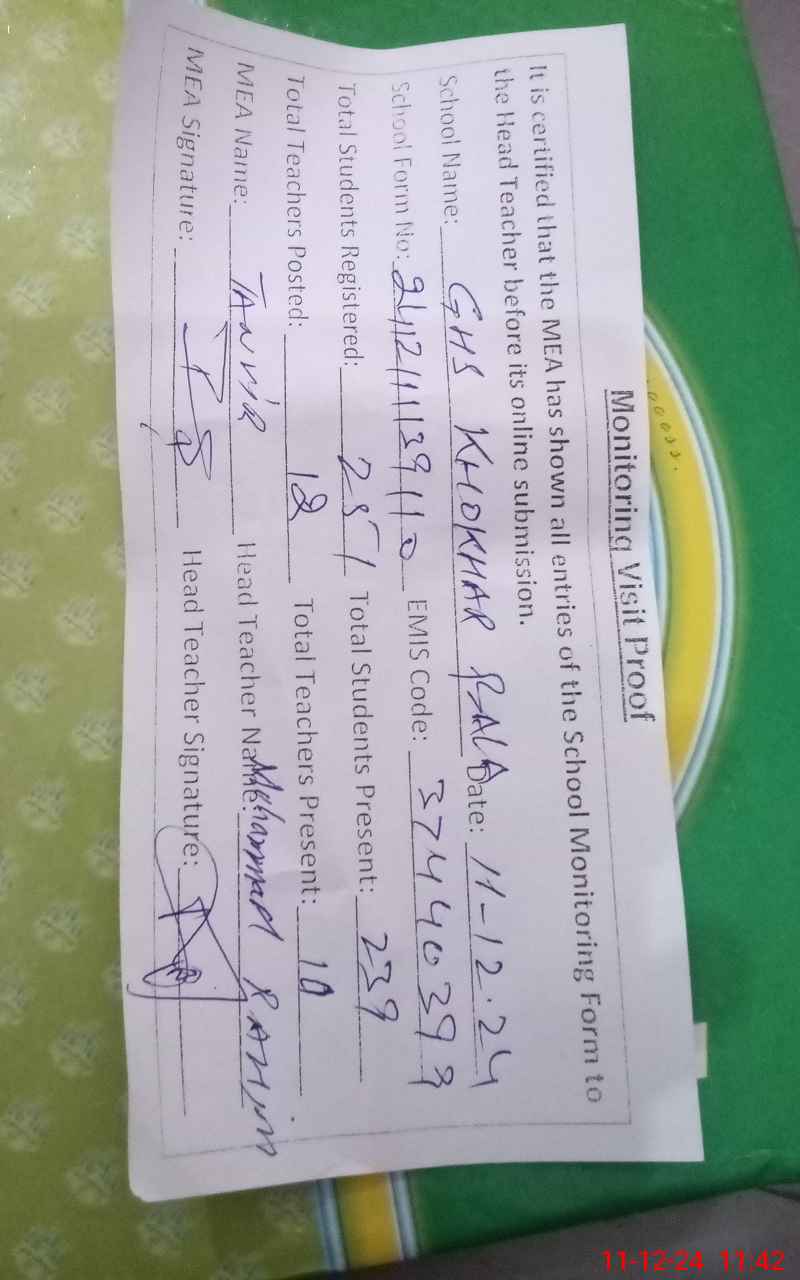 Monitoring Visit Proof
It is certified that the MEA has shown all entries of the School Monitoring Form to
the Head Teacher before its online submission.
School Name: GHS KHOKHAR BALA Date: 11-12-24
School Form No: 2412111139110 EMIS Code: 37440393
Total Students Registered: 251 Total Students Present: 239
Total Teachers Posted: 12 Total Teachers Present: 10
MEA Name: TANVIR Head Teacher Name: Mohammad RAHIM
MEA Signature: Head Teacher Signature:
11-12-24 11:42